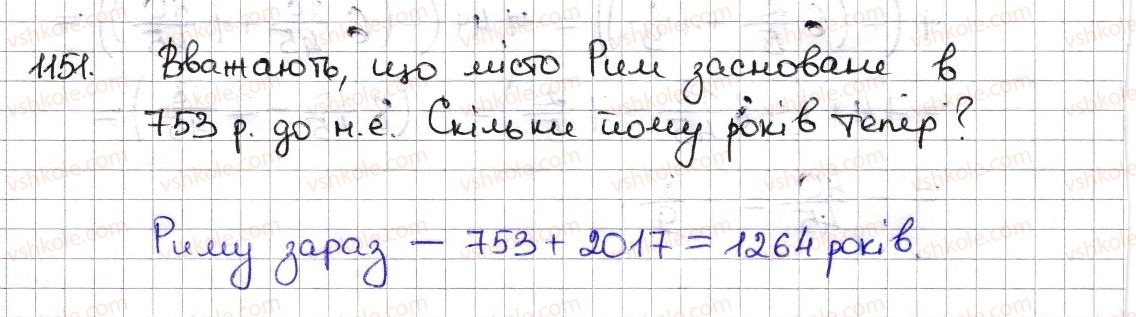 1151. Вважають, що місто Рим засноване в
753 р. до н.е. Скільки йому років тепер?
Риму зараз — 753 + 2017 = 1264 років.